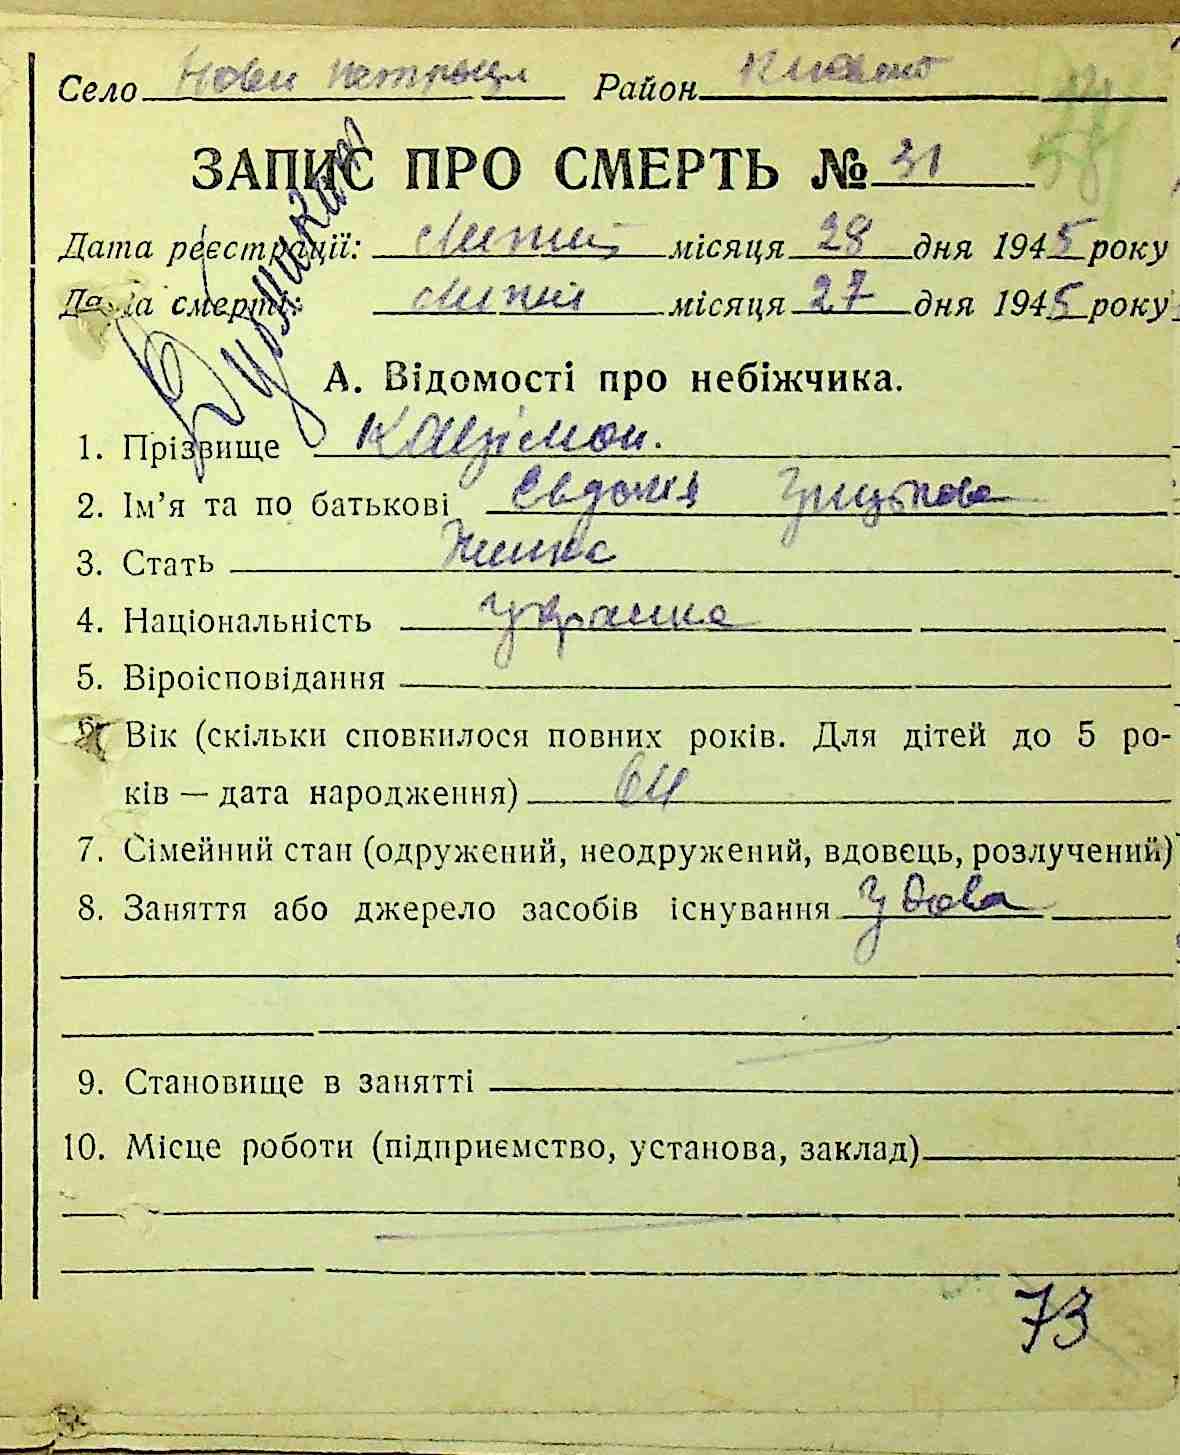 Село Нови Петрівці Район Київськ
ЗАПИС ПРО СМЕРТЬ № 31
Дата реєстрації: Липня місяця 28 дня 1945 року
Дата смерті: Липня місяця 27 дня 1945 року
А. Відомості про небіжчика.
1. Прізвище
2. Ім’я та по батькові Євдокія Грицькова
3. Стать Жинка
4. Національність Украинка
5. Віроісповідання
6. Вік (скільки сповнилося повних років. Для дітей до 5 ро-
ків — дата народження) 64
7. Сімейний стан (одружений, неодружений, вдовець, розлучений)
8. Заняття або джерело засобів існування Удова
9. Становище в занятті
10. Місце роботи (підприємство, установа, заклад)
73